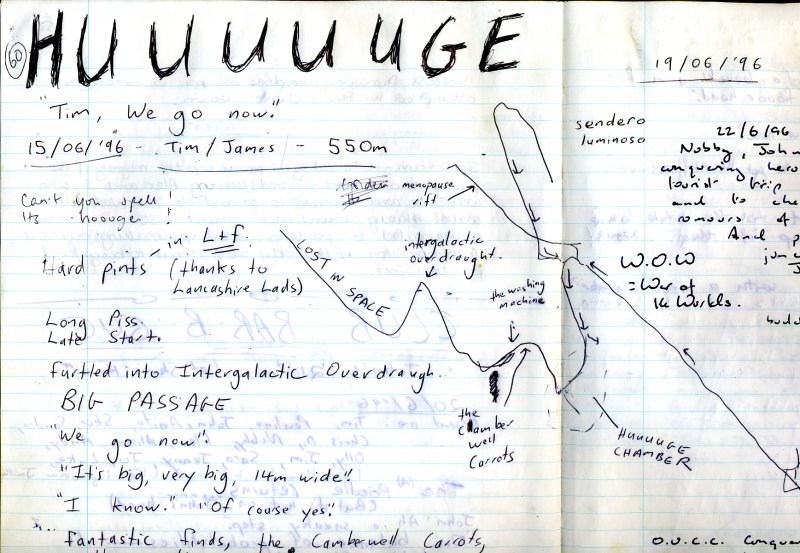 60
HUUUUUUGE
"Tim, We go now."
15/06/'96 - Tim/James - 550m
Can't you spell!
Its hoooge!
Hard pints in L+f.
(thanks to
Lancashire Lads)
Long Piss.
Late Start.
furtled into Intergalactic Overdraugh.
BIG PASSAGE
"We go now".
"It's big, very big, 14m wide"!
"I know." "Of course yes".
fantastic finds, the Camberwell Carrots,
menopause
rift
intergalactic
overdraught.
LOST IN SPACE
the washing
machine
the
Camber
well
Carrots
HUUUUGE
CHAMBER
19/06/'96
sendero
luminoso
22/6/96
Nobby, John
conquering hero
tourist trip
and to che
romours of
And p
W.O.W
= War of
the Worlds.
O.U.C.C. Conque